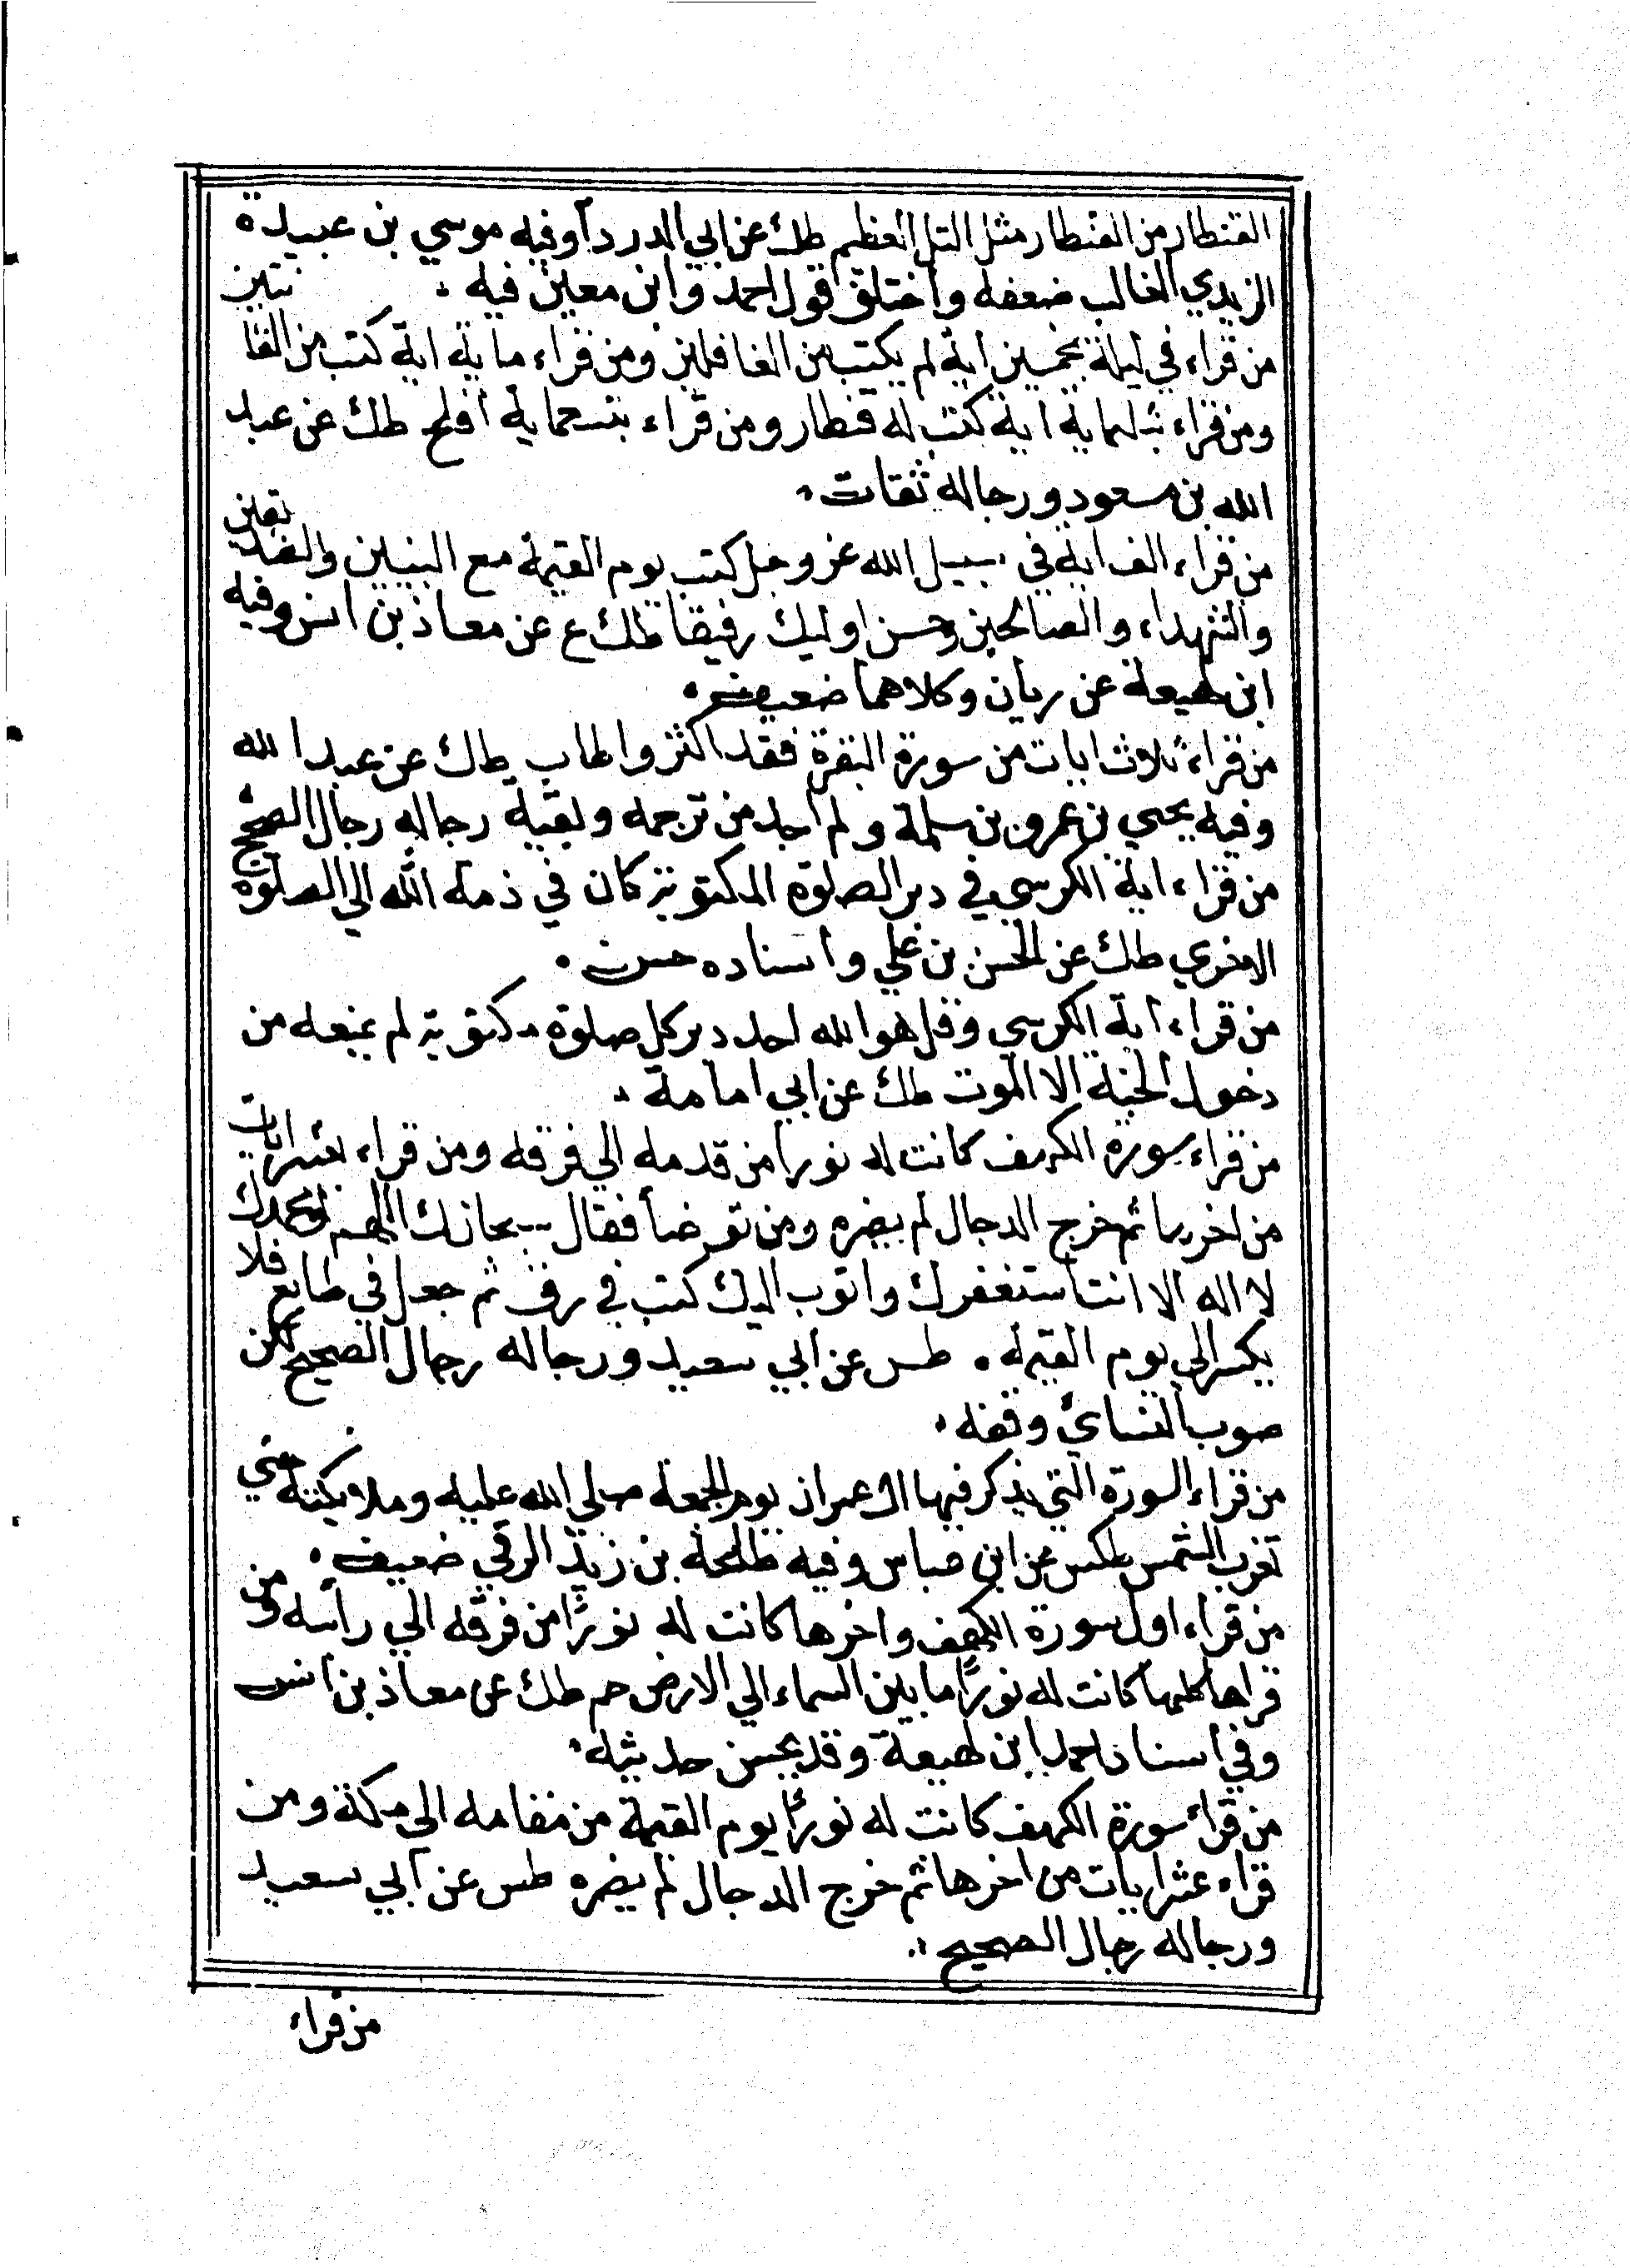 القنطار من القنطار مثل التل العظيم طك عن ابي الدردآ وفيه موسي بن عبيدة
الزيدي الغالب ضعفه واختلق قول احمد وابن معين فيه .
من قراء في ليلة بخمسين اية لم يكتب من الغافلين ومن قراء ماية اية كتب من القا نتين
ومن قراء بثلثماية اية كتب له قنطار ومن قراء بتسعماية افلح طك عن عبد
الله بن مسعود ورجاله ثقات .
من قراء الف اية في سبيل الله عز وجل كتب يوم القيمة مع النبيين والصديقين
والشهداء والصالحين وحسن اوليك رفيقا طك ع عن معاذ بن انس وفيه
ابن لهيعة عن ريان وكلاهما ضعيف .
من قراء ثلاث ايات من سورة البقرة فقد اكثر واطاب طك عن عبد الله
وفيه يحيي بن عمرو بن سلمة ولم اجد من ترجمه وبقية رجاله رجال الصحيح
من قراء اية الكرسي في دبر الصلوة المكتوبة كان في ذمة الله الي الصلوة
الاخري طك عن الحسن بن علي واسناده حسن .
من قراء اية الكرسي وقل هو الله احد دبر كل صلوة مكتوبة لم يمنعه من
دخول الجنة الا الموت طك عن ابي امامة .
من قراء سورة الكهف كانت له نورا من قدمه الي فرقه ومن قراء بعشر ايات
من اخرها ثم خرج الدجال لم يضره ومن توضأ فقال سبحانك اللهم وبحمدك
لا اله الا انت استغفرك واتوب اليك كتب في رق ثم جعل في طابع فلا
يكسر الي يوم القيمة . طس عن ابي سعيد ورجاله رجال الصحيح لكن
صوب النسائ وقفه .
من قراء السورة التي يذكر فيها ال عمران يوم الجمعة صلي الله عليه وملايكته حتي
تغرب الشمس طكس عن ابن عباس وفيه طلحة بن زيد الرقي ضعيف .
من قراء اول سورة الكهف واخرها كانت له نورًا من فرقه الي رأسه ومن
قراها كلها كانت له نورًا ما بين السماء الي الارض حم طك عن معاذ بن انس
وفي اسناد احمد ابن لهيعة وقد يحسن حديثه .
من قرأ سورة الكهف كانت له نورًا يوم القيمة من مقامه الي مكة ومن
قراء عشر ايات من اخرها ثم خرج الدجال لم يضره طس عن ابي سعيد
ورجاله رجال الصحيح .
من قراء